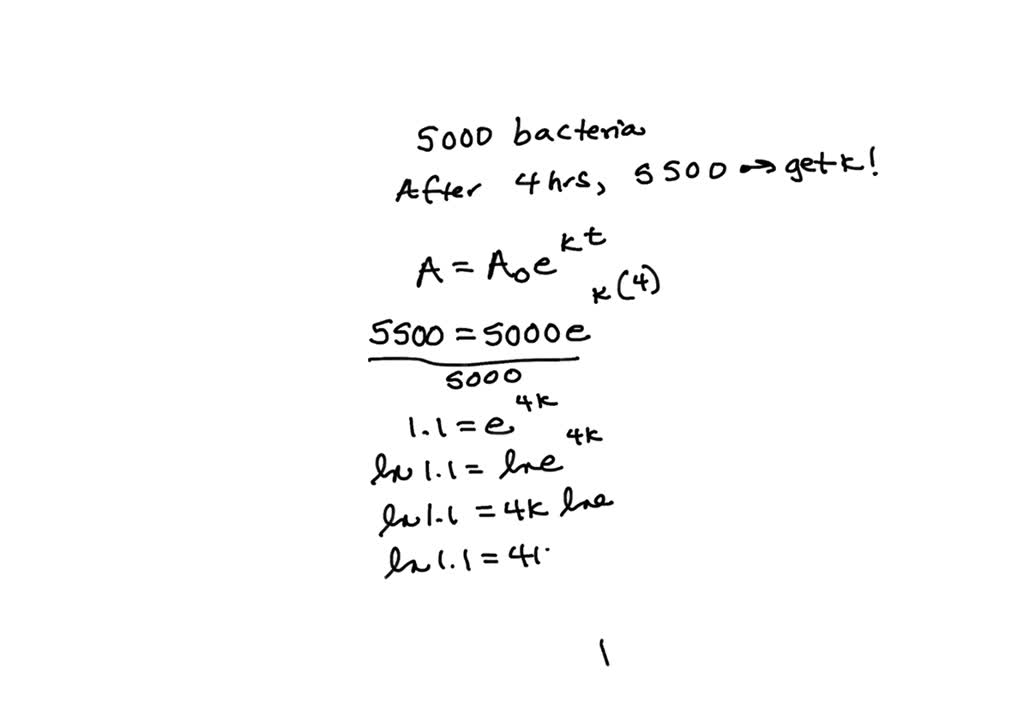 5000 bacteria
After 4hrs, 5500 → get k!
A = A₀e^kt
5500 = 5000e^k(4)
5000
1.1 = e^4k
ln 1.1 = ln e^4k
ln 1.1 = 4k ln e
ln 1.1 = 4